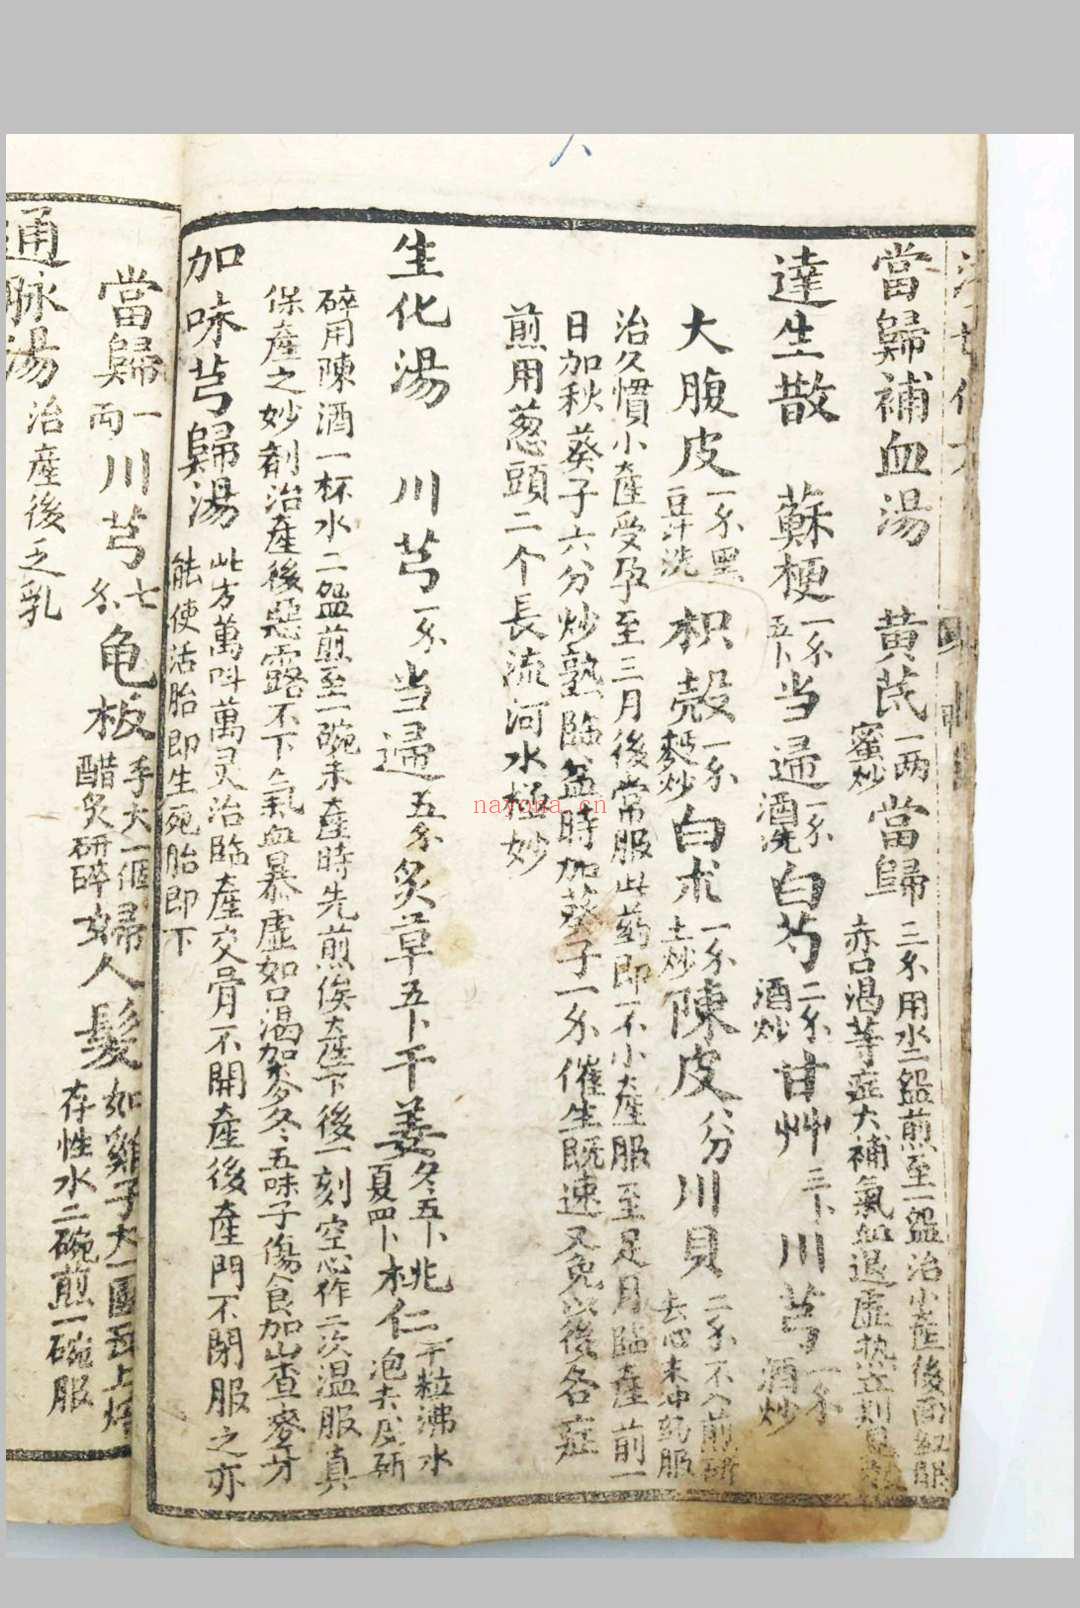 當歸補血湯 黄芪一两蜜炒 當歸三糸用水二盌煎至一盌治小產後面紅眼
赤口渴等症大補氣血退虚热立刻見
達生散 蘇梗一糸五卜当归一糸酒洗白芍二糸酒炒甘艸三卜川芎一糸酒炒
大腹皮一糸黑豆汁洗枳殼一糸麸炒白术一糸土炒陳皮八分川貝二糸不入煎研去心末冲艽服
治久慣小產受孕至三月後常服此葯即不小產服至足月臨產前一
日加秋葵子六分炒熟臨盆時加葵子一糸催生既速又免以後各症
煎用葱頭二个長流河水極妙
生化湯 川芎一糸当归五糸炙草五卜干姜冬五卜夏四卜桃仁二十粒沸水泡去皮研
碎用陳酒一杯水二盌煎至一碗未產時先煎俟產下後一刻空心作二次温服真
保產之妙劑治產後惡露不下氣血暴虚如口渴加麥冬五味子傷食加山查麥牙
加味芎歸湯 此方萬呌萬灵治臨產交骨不開產後產門不閉服之亦
能使活胎即生死胎即下
當歸一両川芎七糸龟板手大一個醋炙研碎婦人髮如雞子大一團瓦上焙存性水二碗煎一碗服
通脉湯 治產後乏乳
nayona.cn